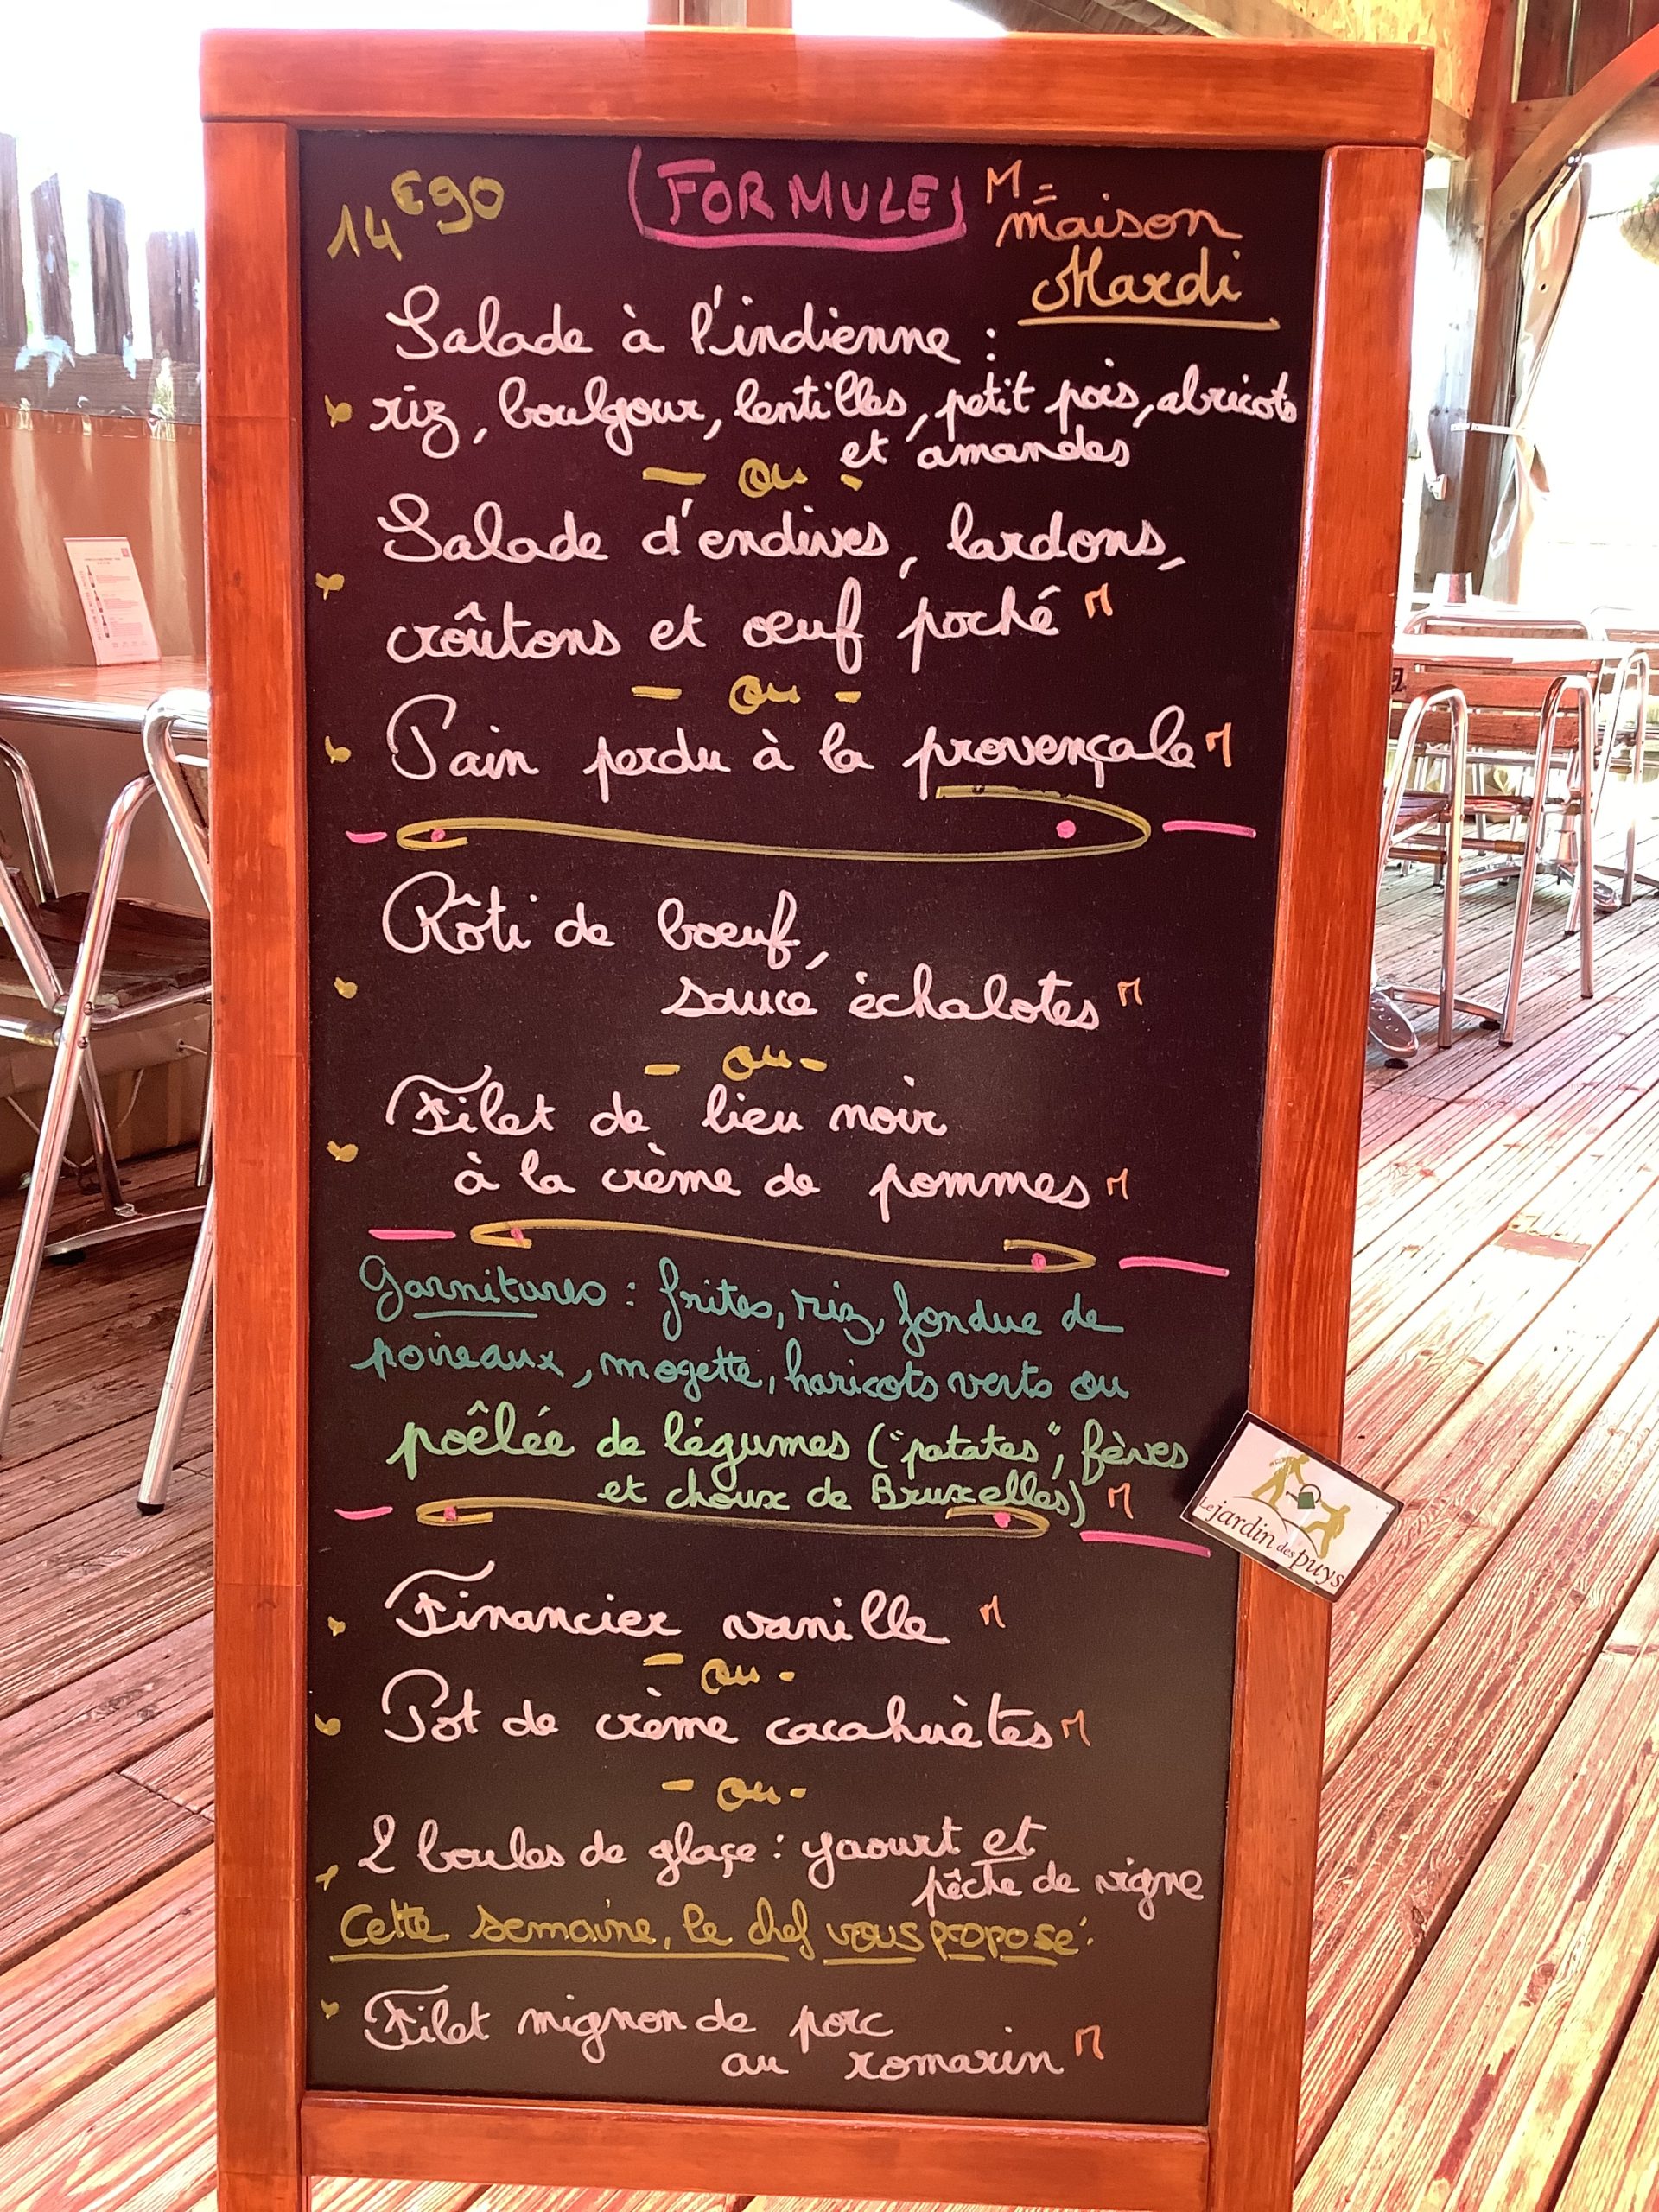 14€90
(FORMULE)
M =
maison
Mardi
Salade à l'indienne :
riz, boulgour, lentilles, petit pois, abricots
et amandes
- ou -
Salade d'endives, lardons,
croûtons et oeuf poché M
- ou -
Pain perdu à la provençale M
Rôti de boeuf,
sauce échalotes M
- ou -
Filet de lieu noir
à la crème de pommes M
Garnitures : frites, riz, fondue de
poireaux, mogette, haricots verts ou
poêlée de légumes ("patates", fèves
et choux de Bruxelles) M
Le jardin des puys
Financier vanille M
- ou -
Pot de crème cacahuètes M
- ou -
2 boules de glaçe : yaourt et
pêche de vigne
Cette semaine, le chef vous propose :
Filet mignon de porc
au romarin M